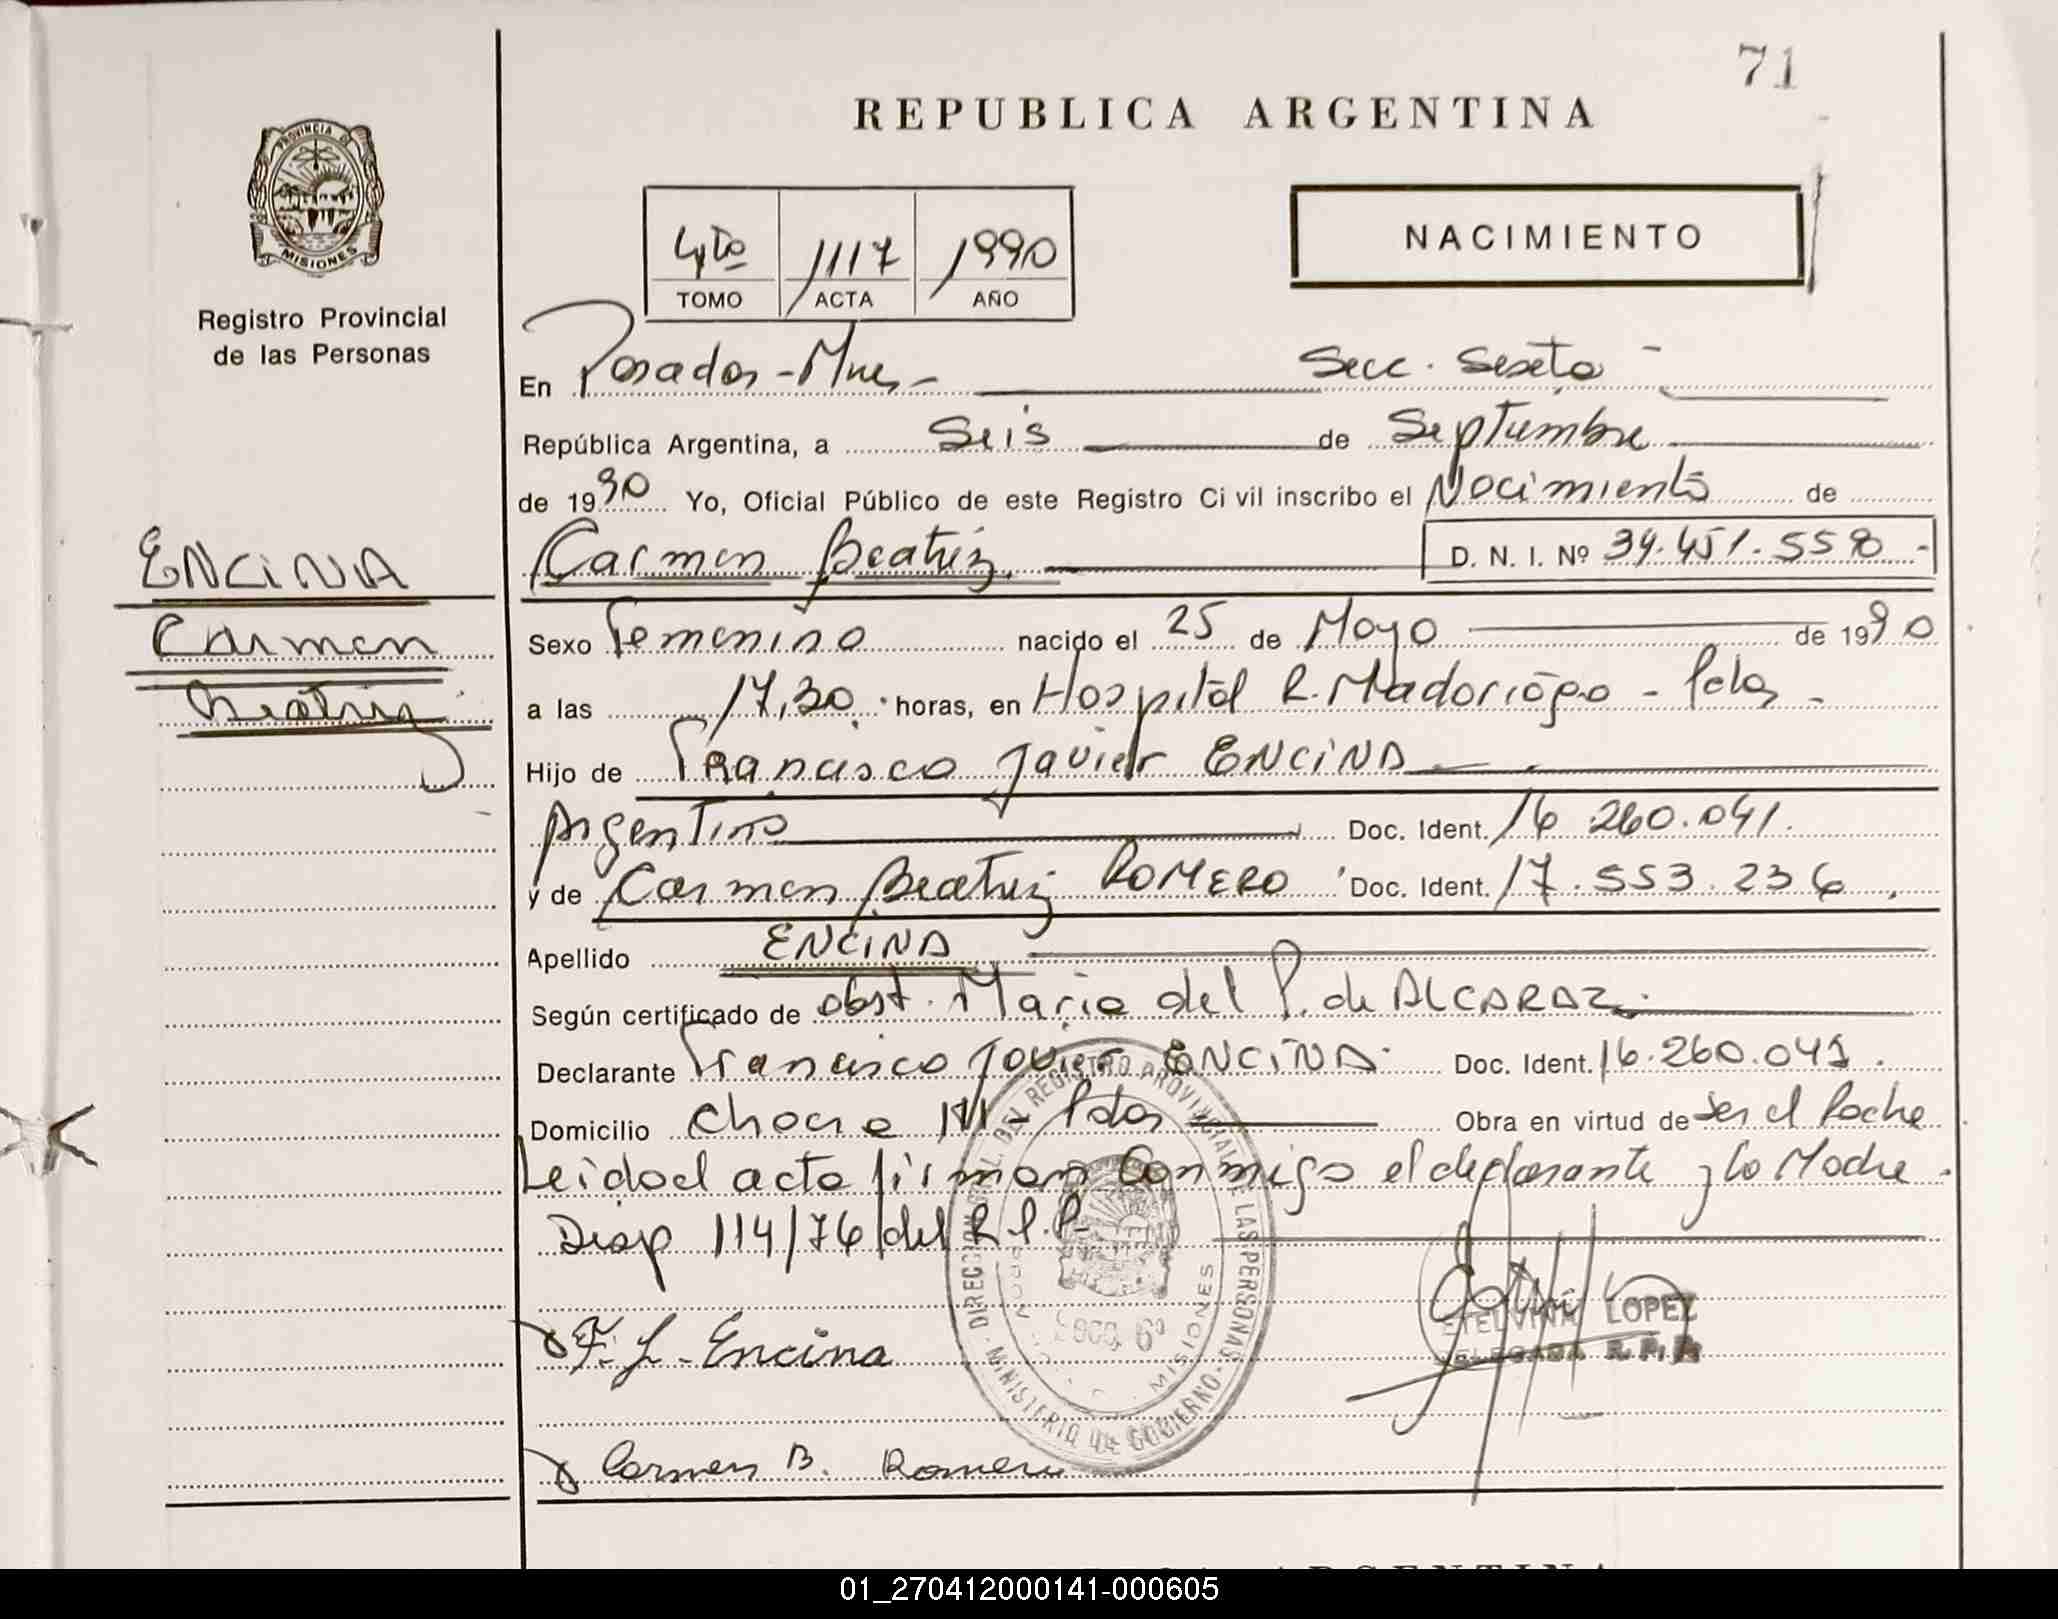 71
REPUBLICA ARGENTINA
PROVINCIA DE
MISIONES
Registro Provincial
de las Personas
4to 1117 1990
TOMO ACTA AÑO
NACIMIENTO
En Posadas - Mnes - Secc. Sexta -
República Argentina, a Seis de Septiembre
de 1990 Yo, Oficial Público de este Registro Civil inscribo el Nacimiento de
ENCINA
Carmen
Beatriz
Carmen Beatriz. D. N. I. Nº 34.451.558 -
Sexo Femenino nacido el 25 de Mayo de 1990
a las 17,30 horas, en Hospital R. Madariaga - Pdas -
Hijo de Francisco Javier ENCINA
Argentino Doc. Ident. 16 260.041.
y de Carmen Beatriz ROMERO Doc. Ident. 17.553.236
Apellido ENCINA
Según certificado de obst. Maria del P. de ALCARAZ.
Declarante Francisco Javier ENCINA Doc. Ident. 16.260.041.
Domicilio Chacra - Pdas Obra en virtud de ser el Padre
Leida el acta firman conmigo el declarante y la Madre.
Disp 114/76 del R.P.P.
DIRECCION GRAL. DEL REGISTRO PROVINCIAL DE LAS PERSONAS
MINISTERIO DE GOBIERNO
SECC. 6º
MISIONES
F. J. Encina
ETELVINA LOPEZ
DELEGADA R. P. P.
Carmen B. Romero
01_270412000141-000605